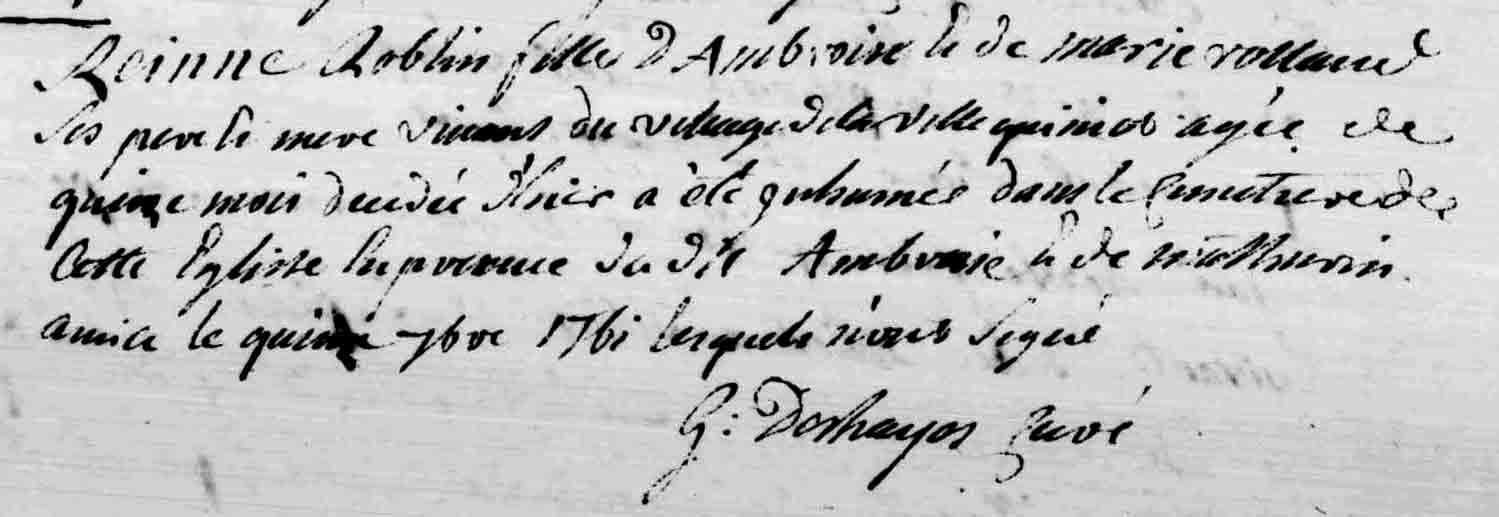 Reinne Roblin fille d'Ambroise & de marie rolland
Ses pere & mere vivans du village de la ville agée de
quinze mois decedée d'hier a été inhumée dans le cimetiere de
Cette Eglisse En presence du dit Ambroise & de Mathurin
amice le quinze 7bre 1761 lesquels n'ont signé
G: Deshayes curé